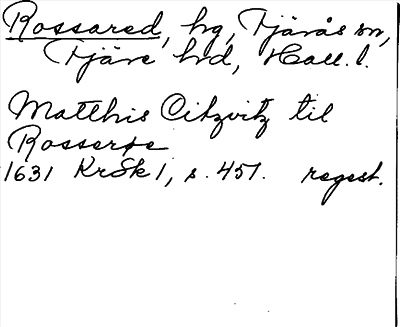 Rossared, hg, Tjärås sn,
Fjäre hd, Hall. l.
Matthis Citzvitz til
Rosserøe
1631 KrSk 1, s. 457. regest.